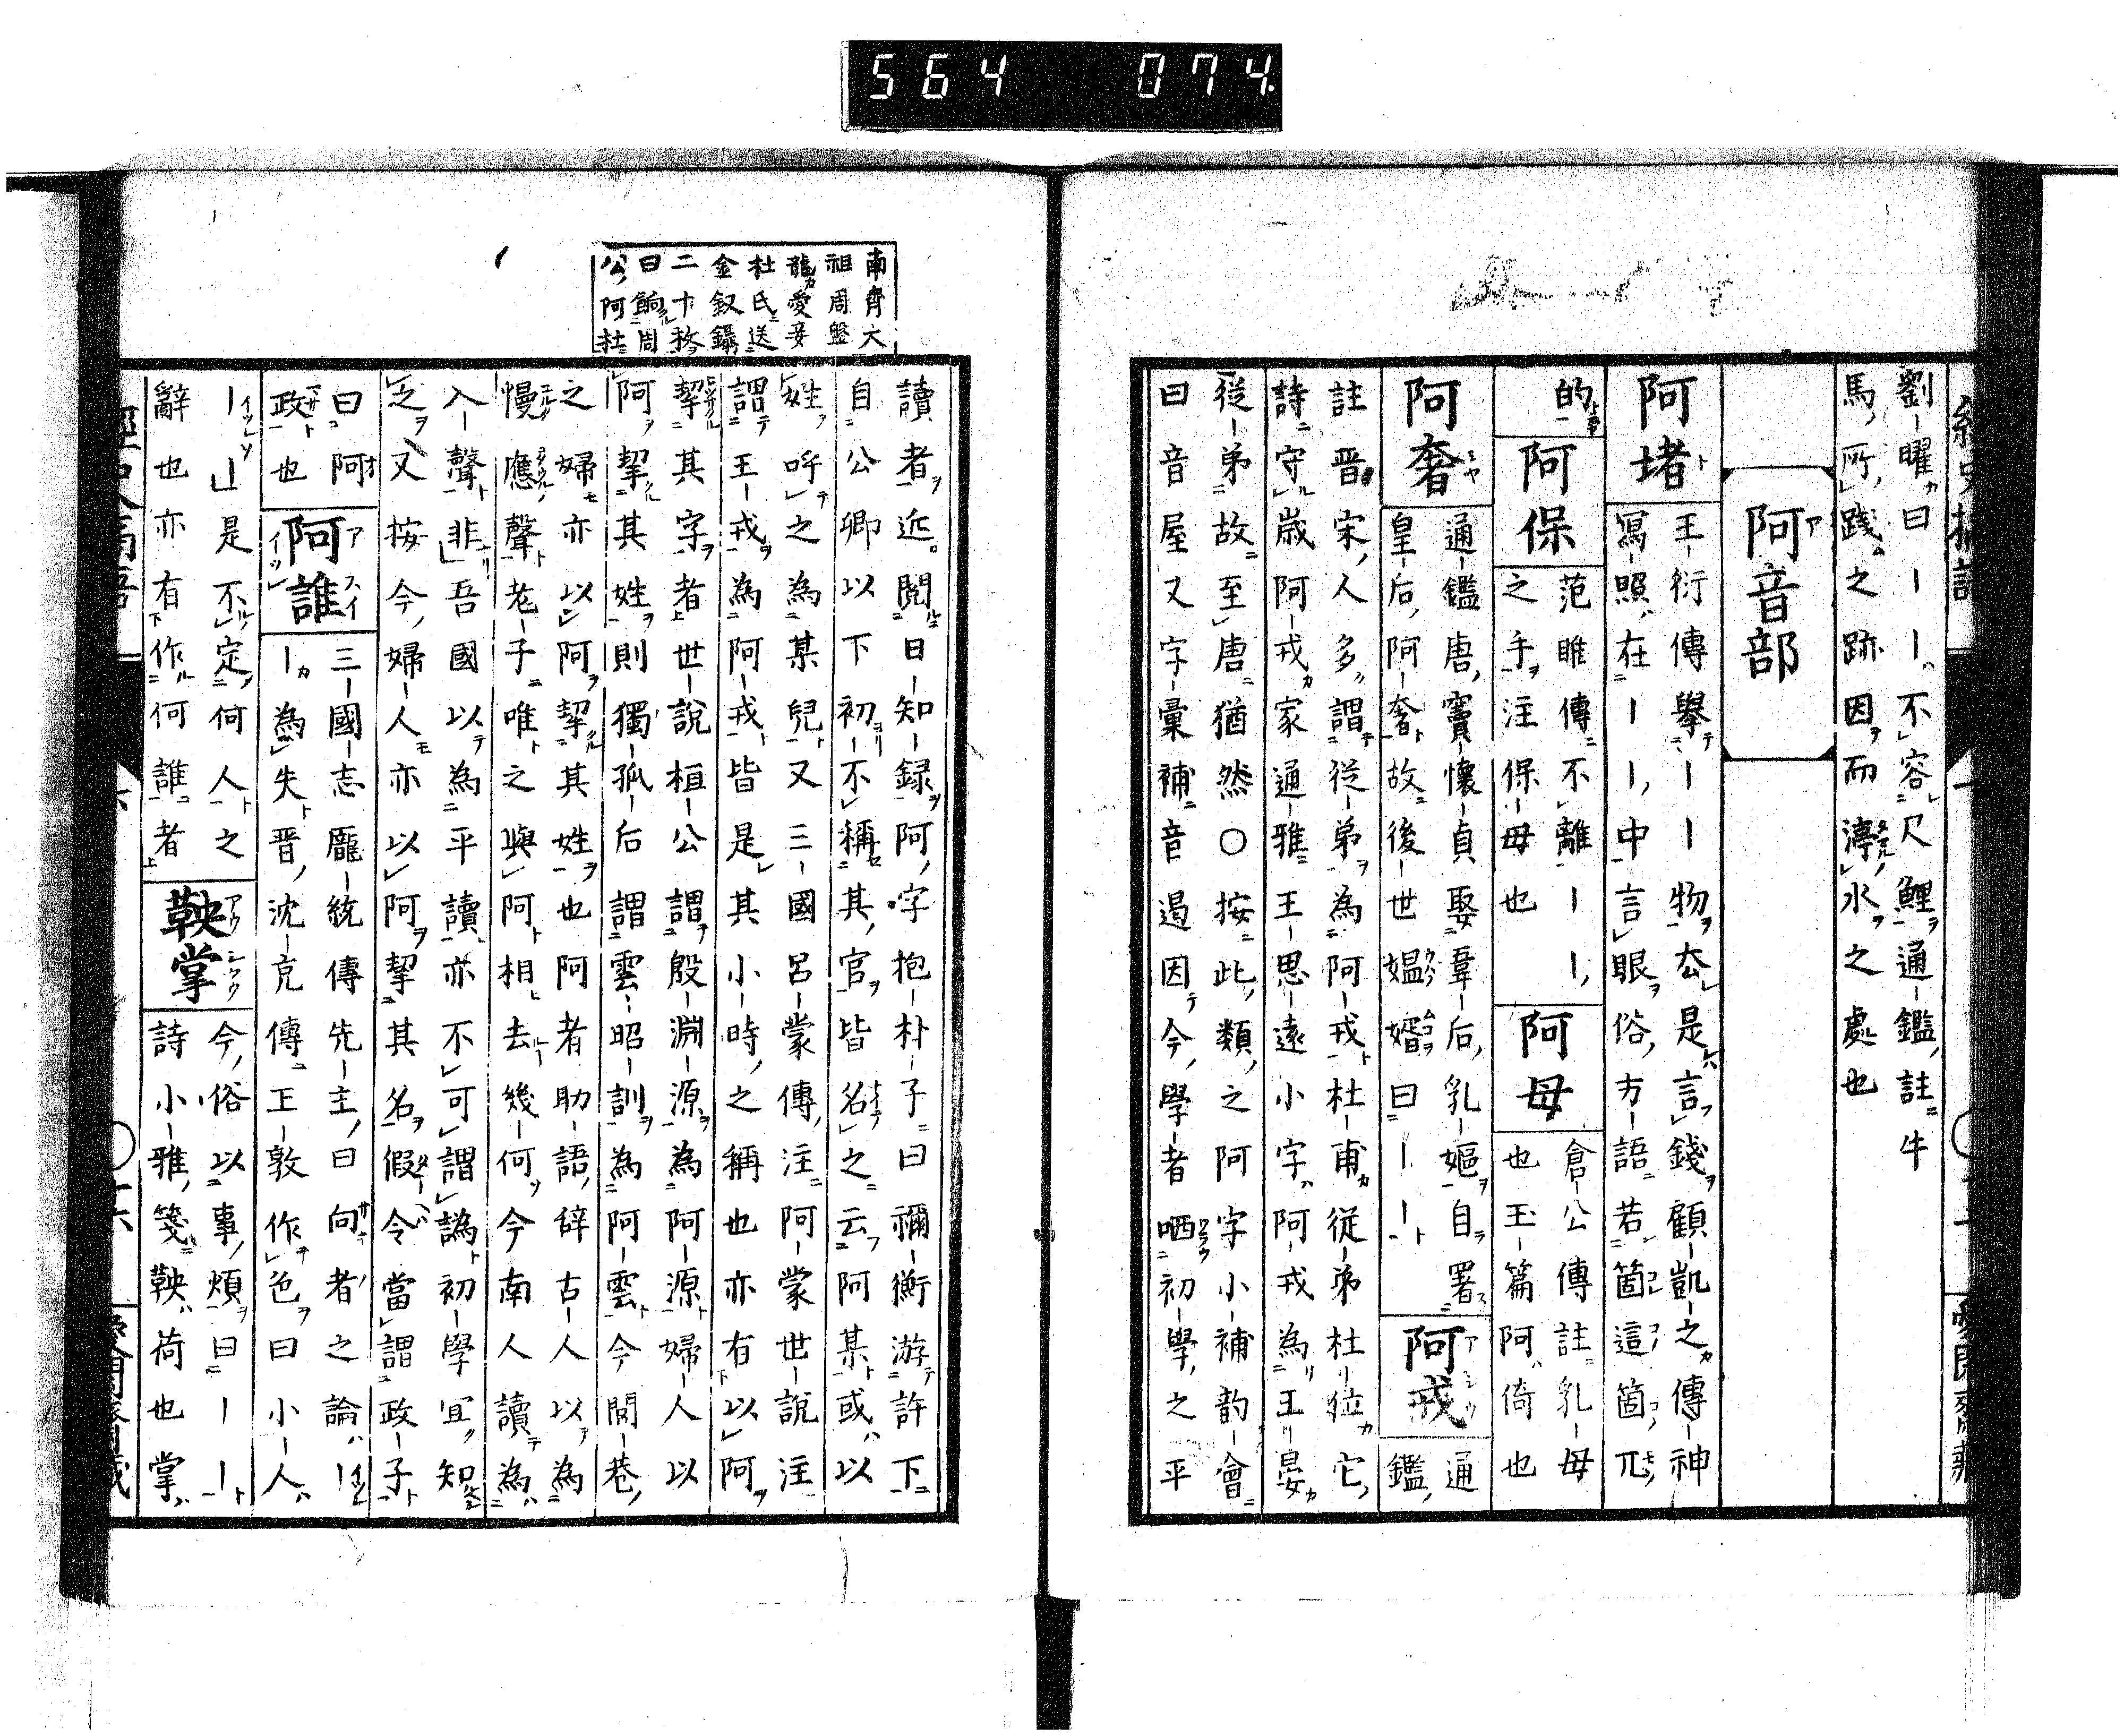 564 074
劉曜曰――不容尺鯉通鑑註牛
馬所踐之跡因而渟水之處也
阿音部
阿堵
王衍傳擧――物厺是言錢顧凱之傳神
寫照在――中言眼俗方語若箇這箇兀
的
阿保
范睢傳不離――
之手注保母也
阿母
倉公傳註乳母
也玉篇阿倚也
阿奢
通鑑唐竇懷貞娶韋后乳嫗自署
皇后阿奢故後世媼婿曰――
阿戎
通
鑑
註晋宋人多謂從弟為阿戎杜甫從弟杜位宅
詩守歳阿戎家通雅王思遠小字阿戎為王晏
從弟故至唐猶然〇按此類之阿字小補韵會
曰音屋又字彙補音遏因今學者哂初學之平
南齊大
祖周盤
龍愛妾
杜氏送
金釵鑷
二十枚
曰餉周
公阿杜
讀者近閲日知録阿字抱朴子曰禰衡游許下
自公卿以下初不稱其官皆名之云阿某或以
姓呼之為某兒又三國呂蒙傳注阿蒙世説注
謂王戎為阿戎皆是其小時之稱也亦有以阿
挈其字者世説桓公謂殷淵源為阿源婦人以
阿挈其姓則獨孤后謂雲昭訓為阿雲今閭巷
之婦亦以阿挈其姓也阿者助語辞古人以為
慢應聲老子唯之與阿相去幾何今南人讀為
入聲非吾國以為平讀亦不可謂譌初學宜知
之又按今婦人亦以阿挈其名假令當謂政子
曰阿
政也
阿誰
三國志龐統傳先主曰向者之論―
―為失晋沈充傳王敦作色曰小人
―是不定何人之
辭也亦有作何誰者
鞅掌
今俗以事煩曰――
詩小雅箋鞅荷也掌